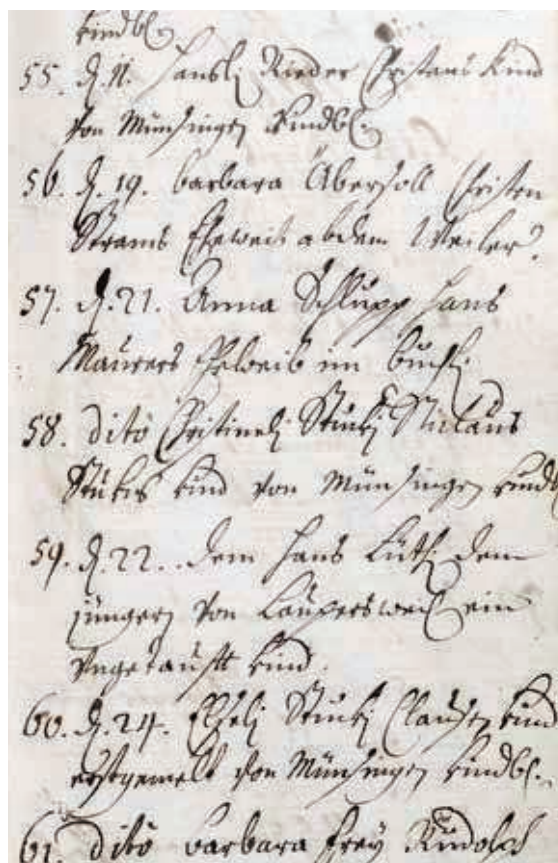 kindbl.
55. d. 11. Hansli Rieder Christens Kind
von Münsingen kindbl.
56. d. 19. barbara Äbersoll Christen
Strams Eheweib ab dem Weiler.
57. d. 21. Anna Schlupp Hans
Maurers Eheweib im buchli
58. dito Christineli Stuki Niclaus
Stukis kind von Münsingen kindbl.
59. d. 22. dem Hans Lüthi dem
jüngern von Laupersweil ein
ungetaufft kind.
60. d. 24. Elseli Stuki Clausen kind
erstgemelt von Münsingen kindbl.
61. dito barbara frey Rudolfs